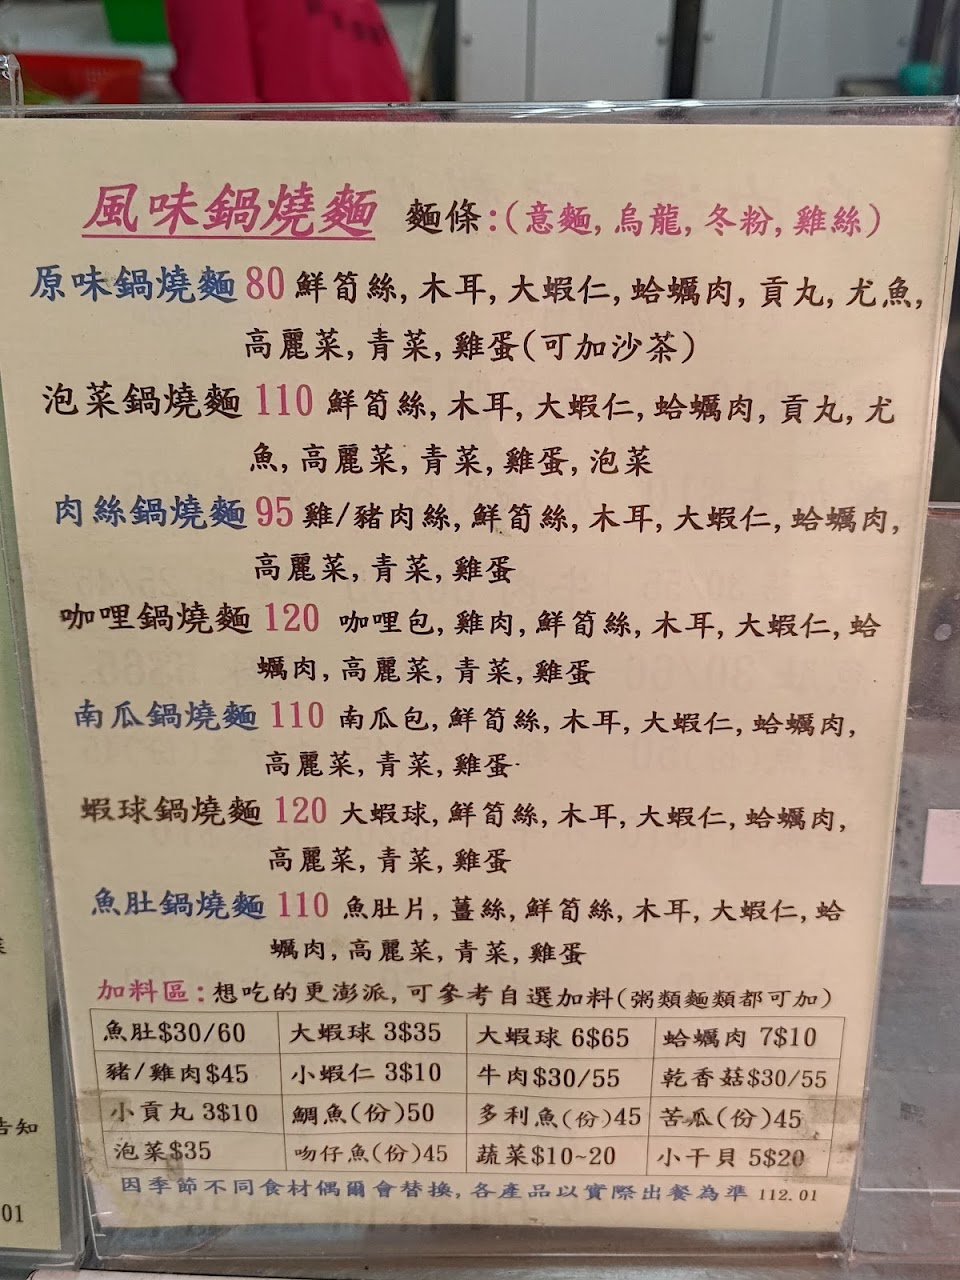 風味鍋燒麵 麵條:(意麵,烏龍,冬粉,雞絲)
原味鍋燒麵 80 鮮筍絲,木耳,大蝦仁,蛤蠣肉,貢丸,尤魚,
高麗菜,青菜,雞蛋(可加沙茶)
泡菜鍋燒麵 110 鮮筍絲,木耳,大蝦仁,蛤蠣肉,貢丸,尤
魚,高麗菜,青菜,雞蛋,泡菜
肉絲鍋燒麵 95 雞/豬肉絲,鮮筍絲,木耳,大蝦仁,蛤蠣肉,
高麗菜,青菜,雞蛋
咖哩鍋燒麵 120 咖哩包,雞肉,鮮筍絲,木耳,大蝦仁,蛤
蠣肉,高麗菜,青菜,雞蛋
南瓜鍋燒麵 110 南瓜包,鮮筍絲,木耳,大蝦仁,蛤蠣肉,
高麗菜,青菜,雞蛋
蝦球鍋燒麵 120 大蝦球,鮮筍絲,木耳,大蝦仁,蛤蠣肉,
高麗菜,青菜,雞蛋
魚肚鍋燒麵 110 魚肚片,薑絲,鮮筍絲,木耳,大蝦仁,蛤
蠣肉,高麗菜,青菜,雞蛋
加料區:想吃的更澎派,可參考自選加料(粥類麵類都可加)
魚肚$30/60 大蝦球 3$35 大蝦球 6$65 蛤蠣肉 7$10
豬/雞肉$45 小蝦仁 3$10 牛肉$30/55 乾香菇$30/55
小貢丸 3$10 鯛魚(份)50 多利魚(份)45 苦瓜(份)45
泡菜$35 吻仔魚(份)45 蔬菜$10~20 小干貝 5$20
因季節不同食材偶爾會替換,各產品以實際出餐為準 112.01
告知
01